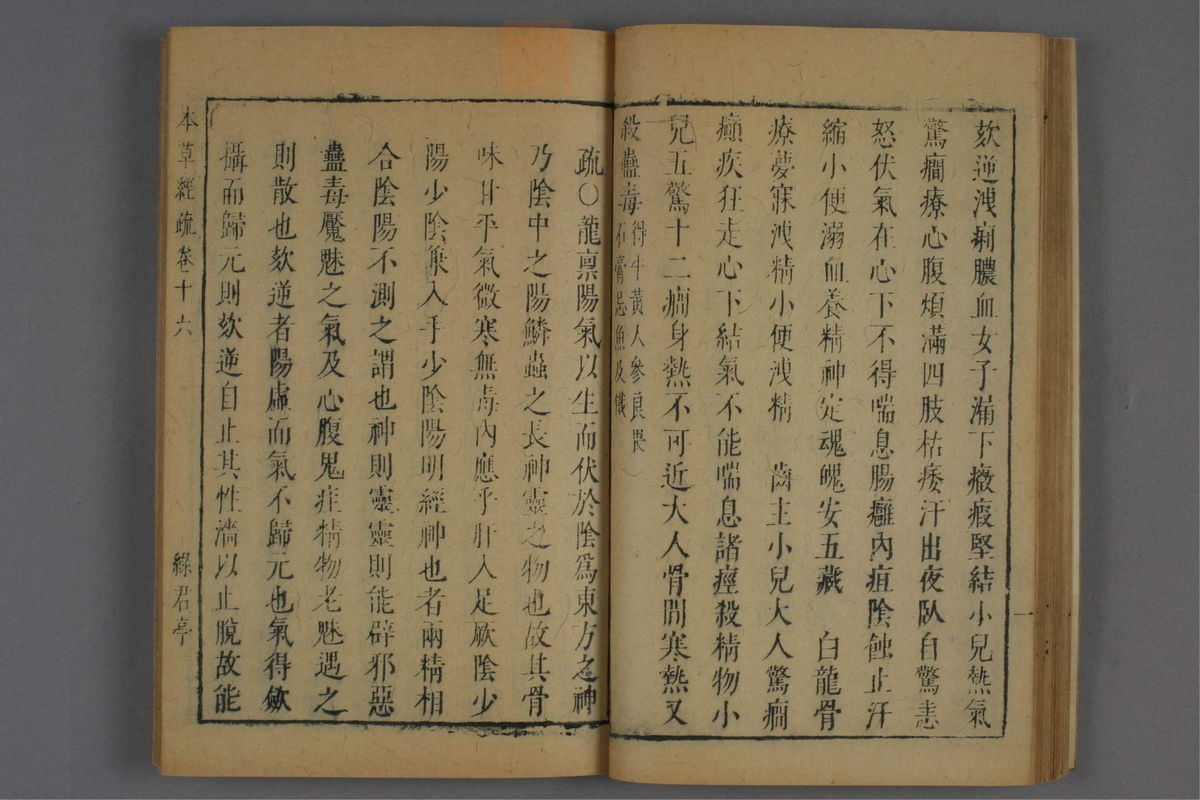 欬逆洩痢膿血女子漏下癥瘕堅結小兒熱氣
驚癎療心腹煩滿四肢枯痿汗出夜臥自驚恚
怒伏氣在心下不得喘息腸癰內疽陰蝕止汗
縮小便溺血養精神定魂魄安五藏　白龍骨
療夢寐洩精小便洩精　齒主小兒大人驚癎
癲疾狂走心下結氣不能喘息諸痙殺精物小
兒五驚十二癎身熱不可近大人骨間寒熱又
殺蠱毒
得牛黃人參良畏
石膏忌魚及鐵
疏○龍禀陽氣以生而伏於陰爲東方之神
乃陰中之陽鱗蟲之長神靈之物也故其骨
味甘平氣微寒無毒內應乎肝入足厥陰少
陽少陰兼入手少陰陽明經神也者兩精相
合陰陽不測之謂也神則靈靈則能辟邪惡
蠱毒魘魅之氣及心腹鬼疰精物老魅遇之
則散也欬逆者陽虛而氣不歸元也氣得斂
攝而歸元則欬逆自止其性濇以止脫故能
本草經疏 卷十六
綠君亭